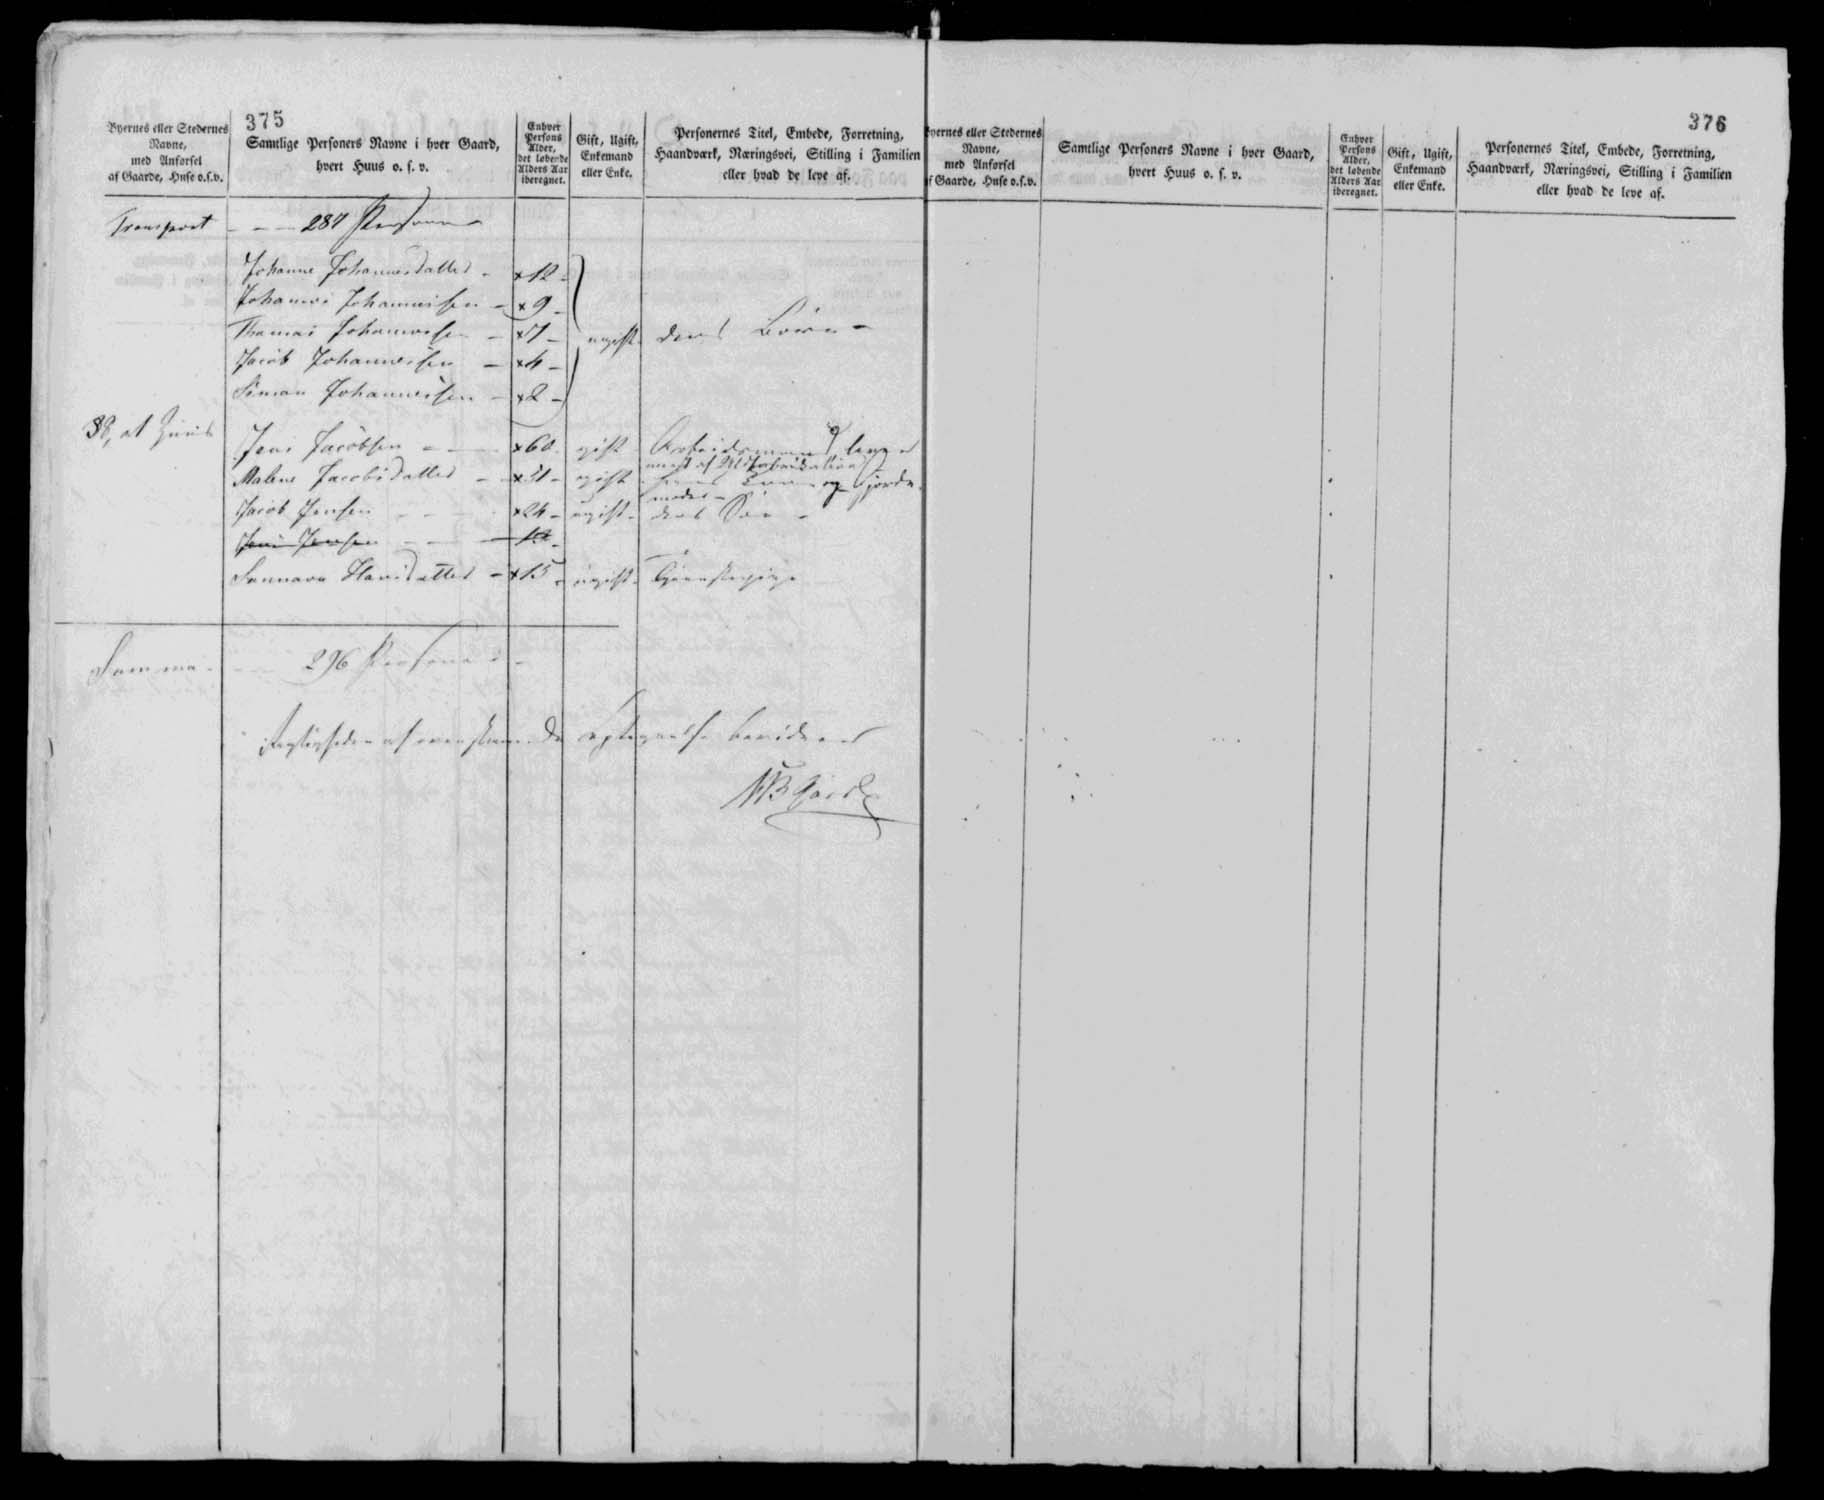 375
Byernes eller Stedernes
Navne,
med Anførsel
af Gaarde, Huse o.s.v.
Samtlige Personers Navne i hver Gaard,
hvert Huus o. s. v.
Enhver
Persons
Alder,
det løbende
Alders Aar
iberegnet.
Gift, Ugift,
Enkemand
eller Enke.
Personernes Titel, Embede, Forretning,
Haandværk, Næringsvei, Stilling i Familien
eller hvad de leve af.
Transport - - - 287 Personer
Johanne Johannesdatter - x 12 -
Johannes Johannessen - x 9 -
Thomas Johannessen - x 7 - ugift deres Børn -
Jacob Johannessen - x 4 -
Simon Johannessen - x 2 -
38, et Huus Jens Jacobsen - x 60 gift Arbeidsmand lever
meest af
Malene Jacobsdatter - x 51 - gift hans Kone og Jorde
moder -
Jacob Jensen - x 24 - ugift - deres Søn -
Jens Jensen - 12 -
Sunnava Hansdatter - x 15 - ugift - Tjenestepige
Summa - 296 Personer -
Rigtigheden af ovenstaaende optegnelse bevidnes
376
Byernes eller Stedernes
Navne,
med Anførsel
af Gaarde, Huse o.s.v.
Samtlige Personers Navne i hver Gaard,
hvert Huus o. s. v.
Enhver
Persons
Alder,
det løbende
Alders Aar
iberegnet.
Gift, Ugift,
Enkemand
eller Enke.
Personernes Titel, Embede, Forretning,
Haandværk, Næringsvei, Stilling i Familien
eller hvad de leve af.